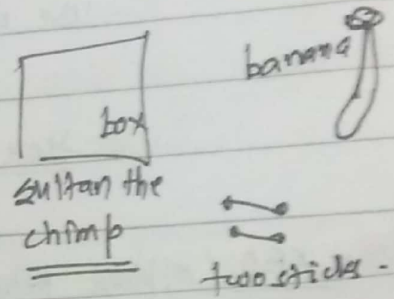 banana
box
sultan the
chimp
two sticks.